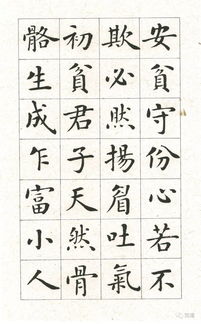 安貧守份心若不
欺必然揚眉吐氣
初貧君子天然骨
骼生成乍富小人